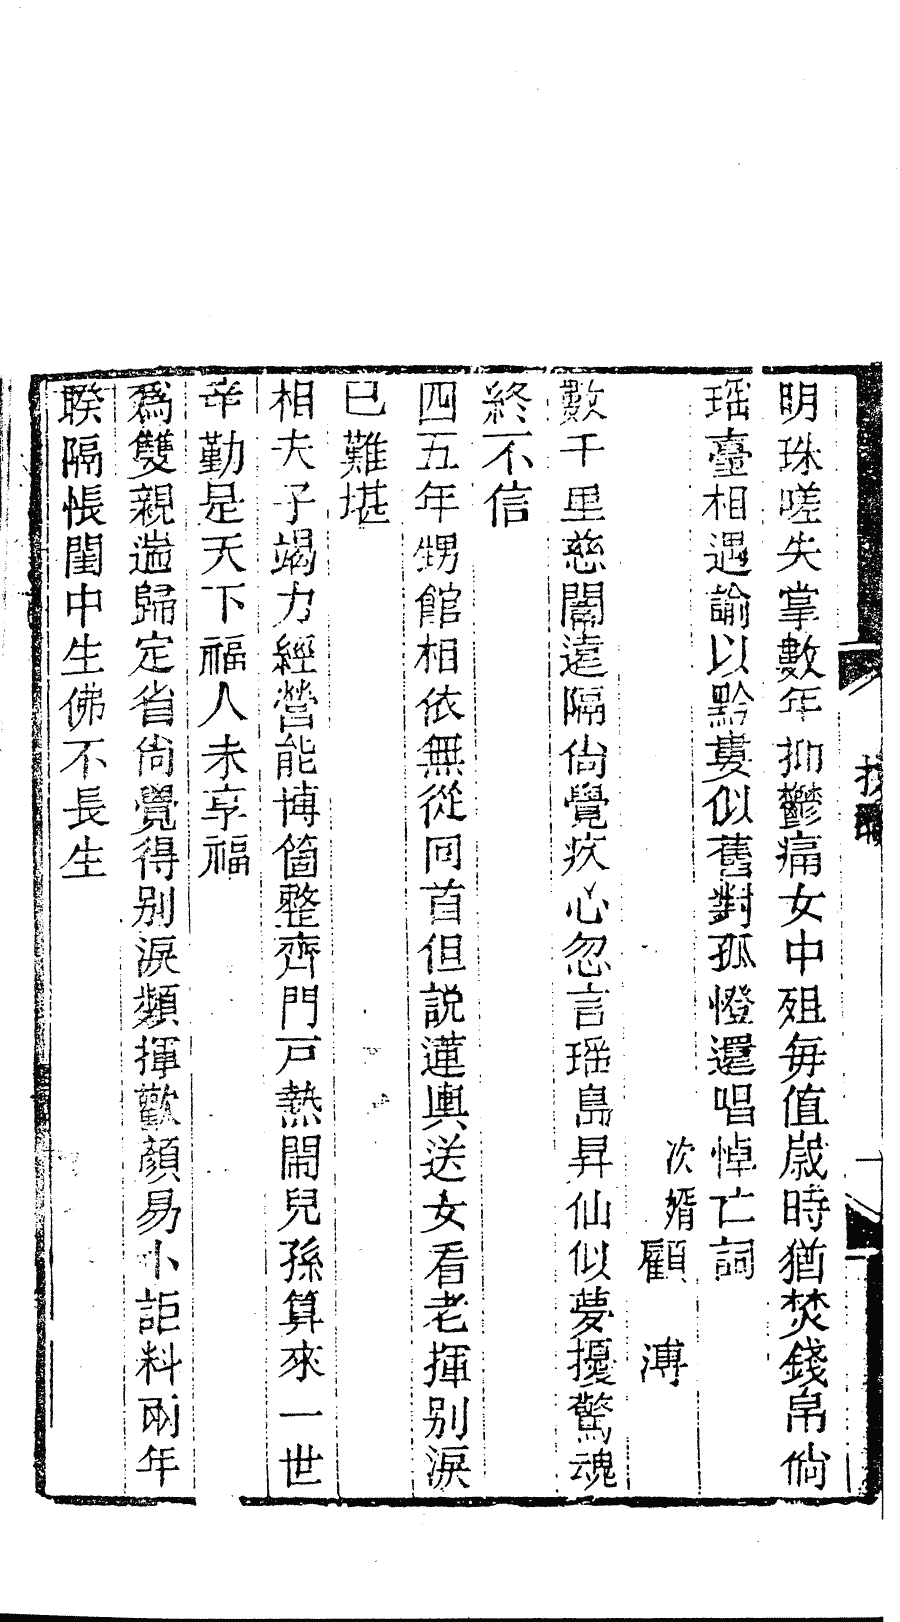 明珠嗟失掌數年抑鬱痛女中殂每值歲時猶焚錢帛倘
瑶臺相遇諭以黔婁似舊對孤燈還唱悼亡詞
次壻顧　溥
數千里慈闈遠隔尙覺疚心忽言瑶島昇仙似夢擾驚魂
終不信
四五年甥館相依無從回首但說蓮輿送女看老揮别淚
已難堪
相夫子竭力經營能博箇整齊門戸熱閙兒孫算來一世
辛勤是天下福人未享福
爲雙親遄歸定省尙覺得别淚頻揮歡顔易小詎料兩年
睽隔悵閨中生佛不長生